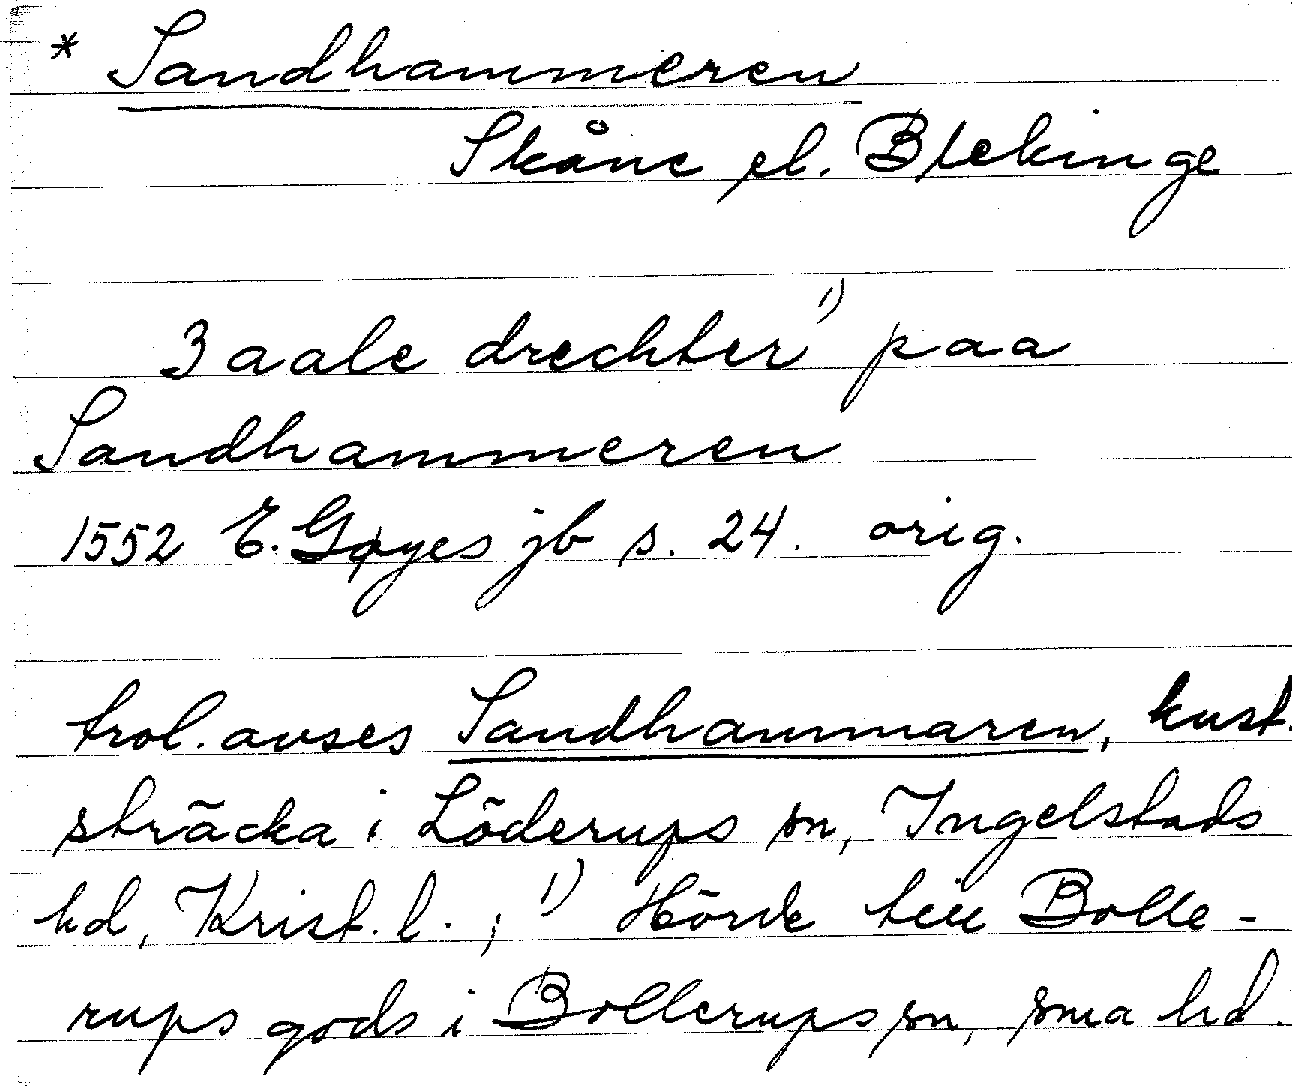 * Sandhammeren
Skåne el. Blekinge
3 aale drechter 1) paa
Sandhammeren
1552 E. Gøyes jb s. 24. orig.
trol. avses Sandhammaren, kust-
sträcka i Löderups sn, Ingelstads
hd, Krist. l. ; 1) Hörde till Bolle-
rups gods i Bollerups sn, sma hd.